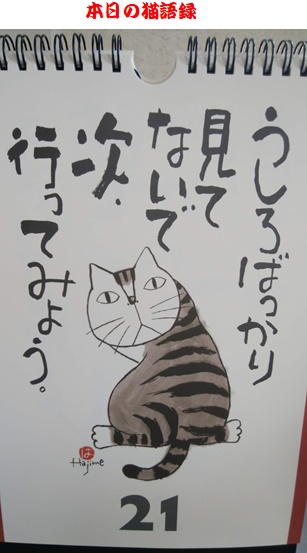 本日の猫語録
うしろばっかり
見て
ないで
次、
行ってみよう。
は
Hajime
21